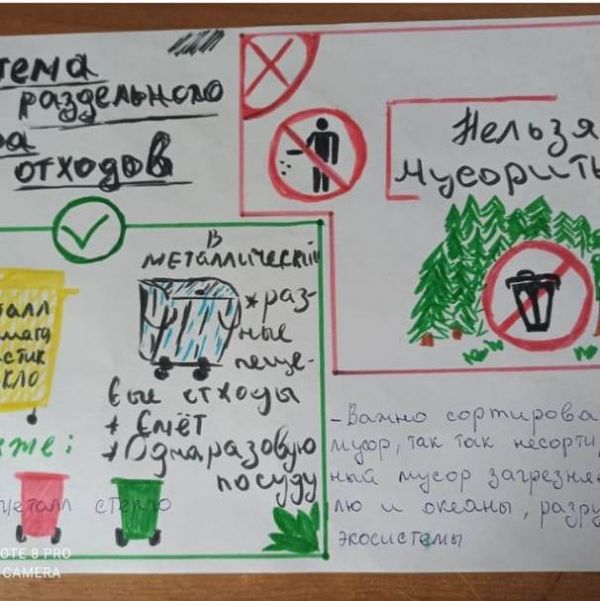 тема
раздельного
ра
отходов
Нельзя
мусорить
в
металлический
*раз-
ные
пище-
вые отходы
* Смёт
* Одноразовую
посуду
талл
мага
стик
кло
же:
металл
стекло
- Важно сортирова
мусор, так так несорти
ный мусор загрязня
лю и океаны, разру
экосистемы
OTE 8 PRO
CAMERA